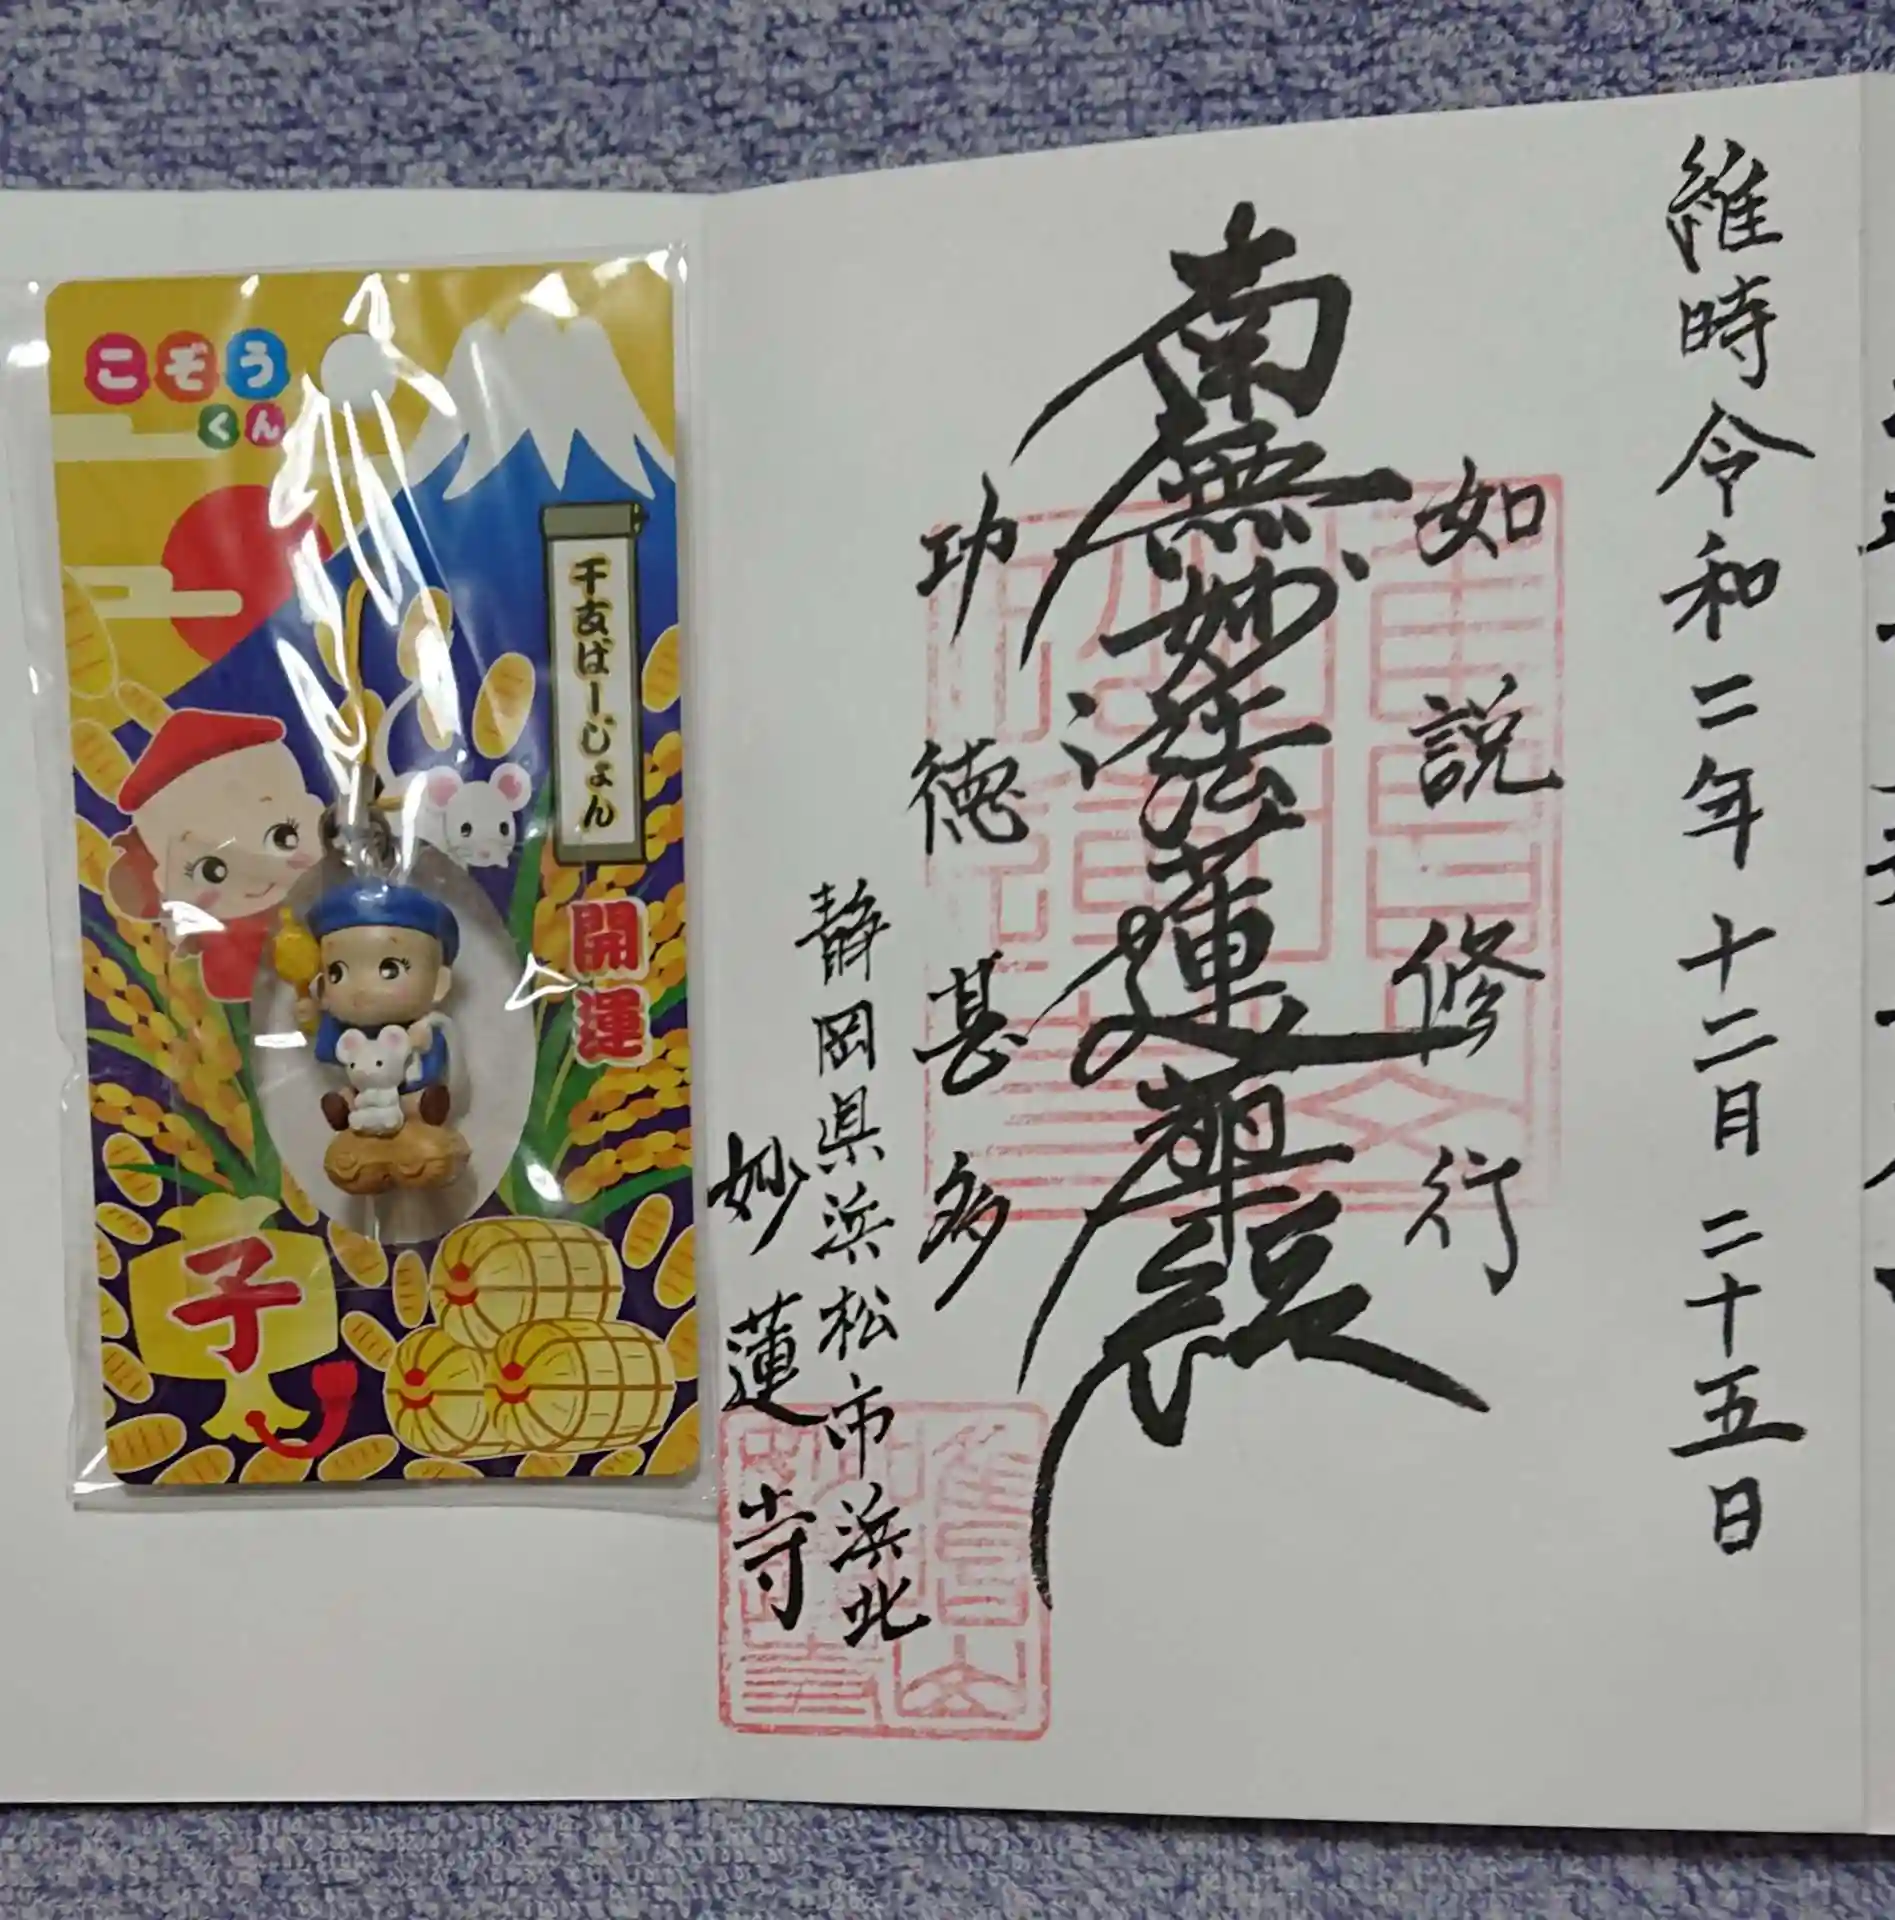 こぞう
くん
干支ばーじょん
開運
子
維時令和二年十二月二十五日
如説修行
南無妙法蓮華経
功徳甚多
静岡県浜松市浜北
妙蓮寺